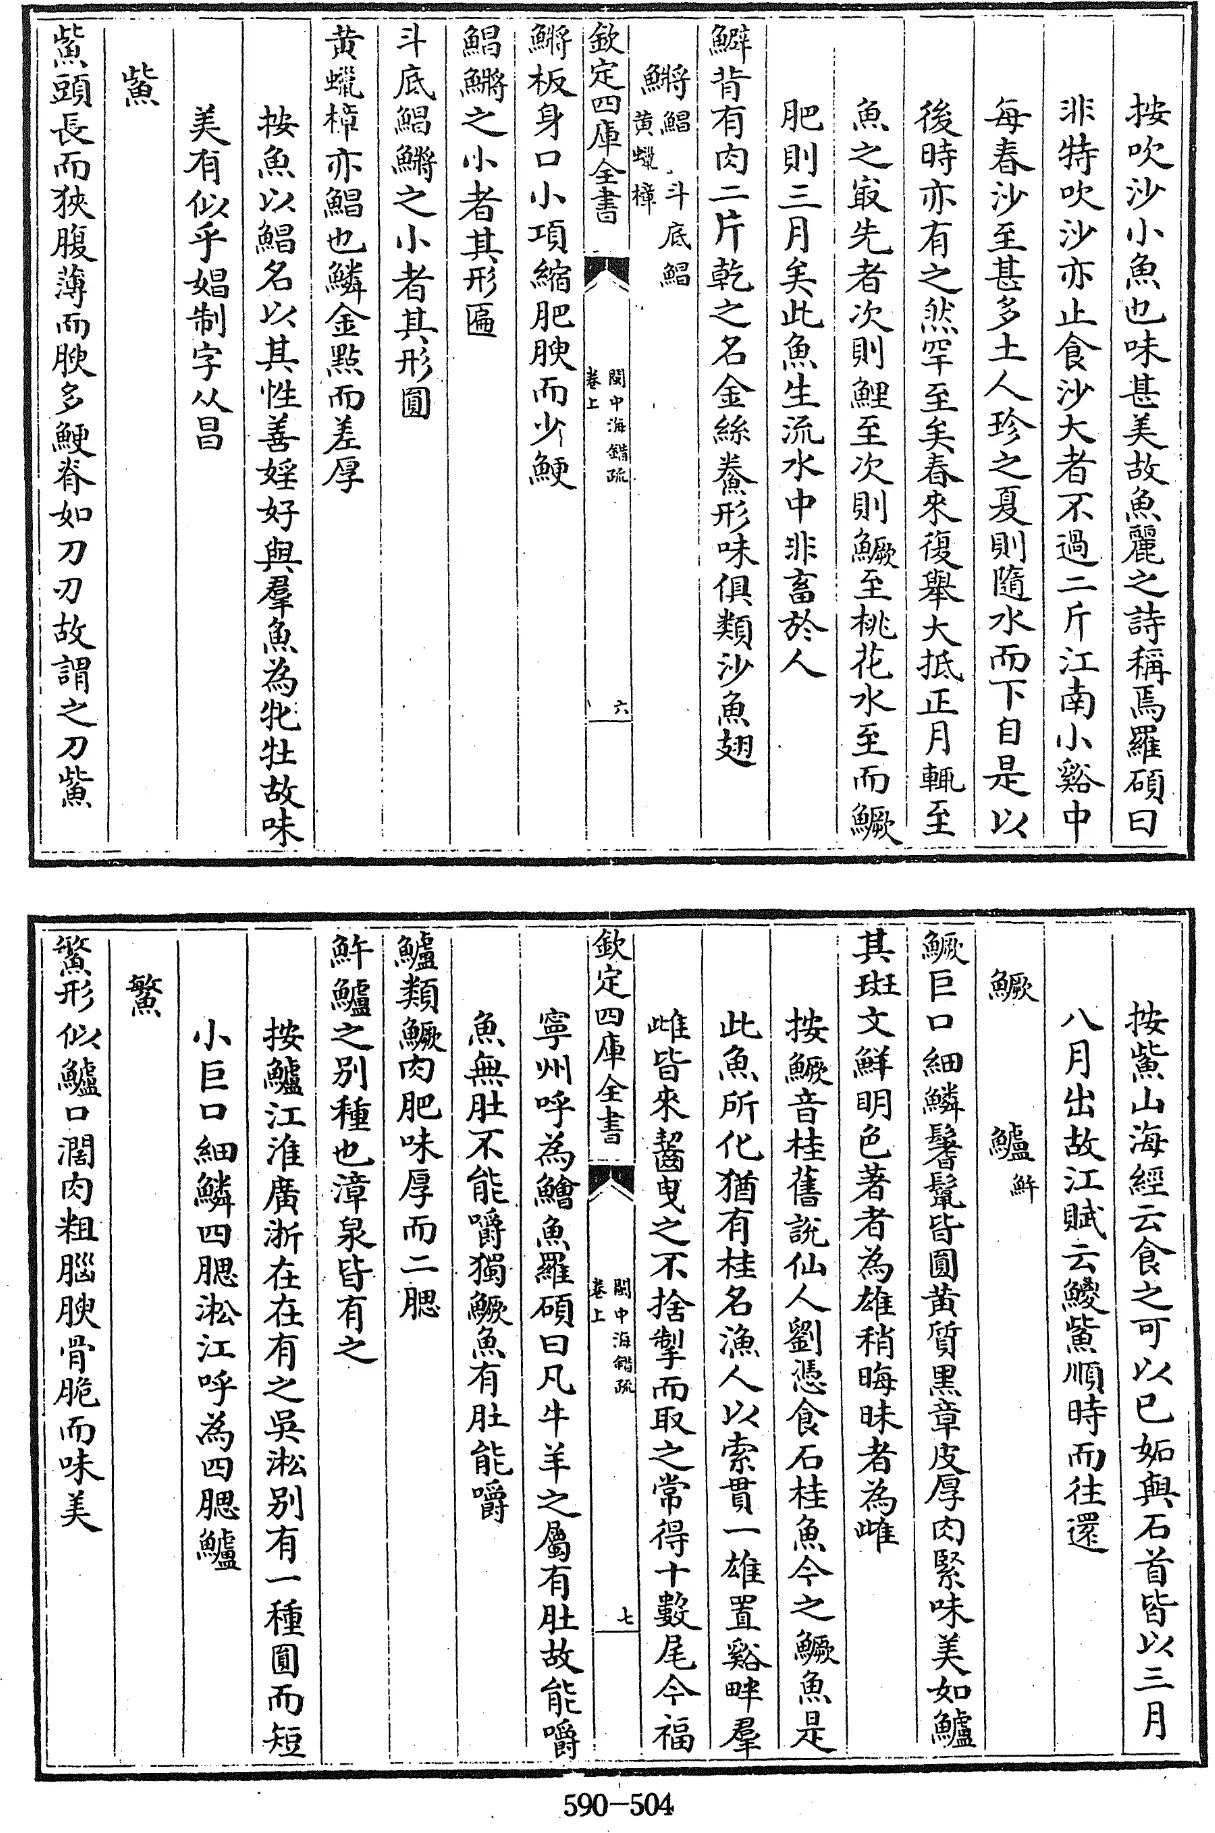 按吹沙小魚也味甚美故魚麗之詩稱焉羅碩曰
非特吹沙亦止食沙大者不過二斤江南小谿中
每春沙至甚多土人珍之夏則隨水而下自是以
後時亦有之然罕至矣春來復舉大抵正月輒至
魚之㝡先者次則鯉至次則鱖至桃花水至而鱖
肥則三月矣此魚生流水中非畜於人
鱕背有肉二片乾之名金絲鮝形味俱類沙魚翅
鱂 鯧 斗底鯧 黃蠟樟
欽定四庫全書 閩中海錯疏 卷上 六
鱂板身口小項縮肥腴而少鯁
鯧鱂之小者其形匾
斗底鯧鱂之小者其形圓
黃蠟樟亦鯧也鱗金點而差厚
按魚以鯧名以其性善婬好與羣魚為牝牡故味
美有似乎娼制字从昌
鮆
鮆頭長而狹腹薄而腴多鯁脊如刀刃故謂之刀鮆
按鮆山海經云食之可以已妬與石首皆以三月
八月出故江賦云鯼鮆順時而往還
鱖 鱸 䱛
鱖巨口細鱗鬐鬛皆圓黃質黑章皮厚肉緊味美如鱸
其斑文鮮明色著者為雄稍晦昧者為雌
按鱖音桂舊說仙人劉憑食石桂魚今之鱖魚是
此魚所化猶有桂名漁人以索貫一雄置谿畔羣
雌皆來齧曳之不捨掣而取之常得十數尾今福
欽定四庫全書 閩中海錯疏 卷上 七
寧州呼為鱠魚羅碩曰凡牛羊之屬有肚故能嚼
魚無肚不能嚼獨鱖魚有肚能嚼
鱸類鱖肉肥味厚而二腮
䱛鱸之別種也漳泉皆有之
按鱸江淮廣浙在在有之吳淞別有一種圓而短
小巨口細鱗四腮淞江呼為四腮鱸
鰵
鰵形似鱸口濶肉粗腦腴骨脆而味美
590-504